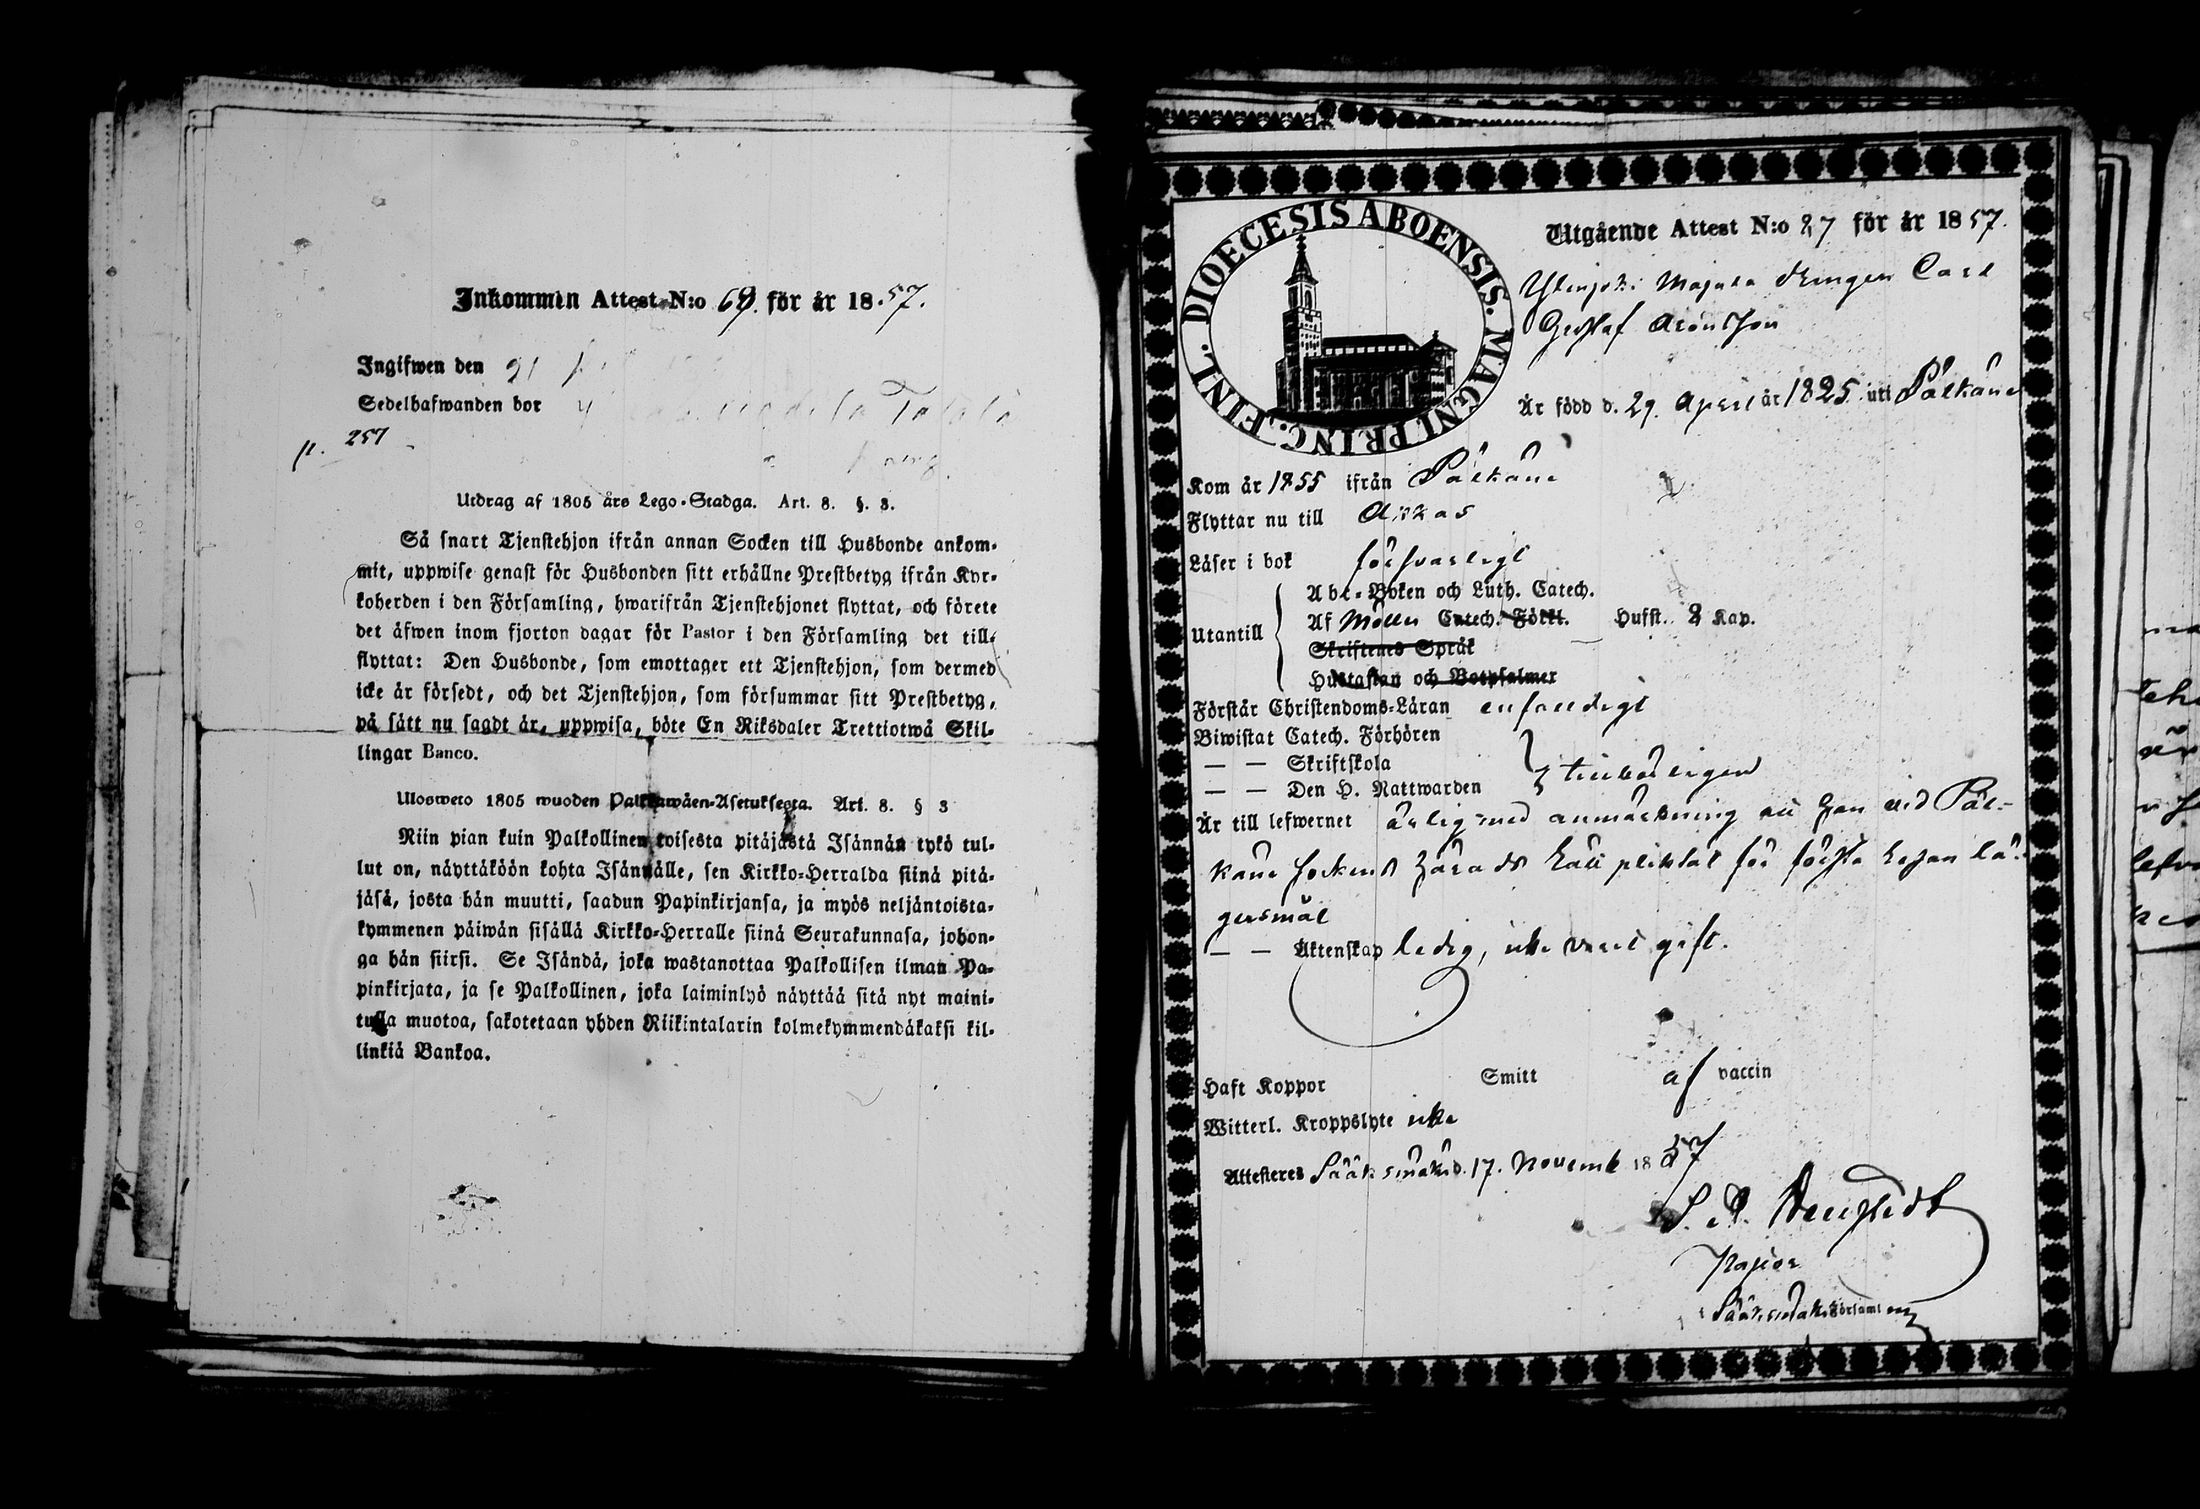 Inkommen Attest N:o 69. för år 1857.
Ingifwen den 21
Sedelhafwanden bor
p. 257
Utdrag af 1805 års Lego-Stadga. Art. 8. §. 3.
Så snart Tjenstehjon ifrån annan Socken till Husbonde ankom-
mit, uppwise genast för Husbonden sitt erhållne Prestbetyg ifrån Kyr-
koherden i den Församling, hwarifrån Tjenstehjonet flyttat, och förete
det äfwen inom fjorton dagar för Pastor i den Församling det till-
flyttat: Den Husbonde, som emottager ett Tjenstehjon, som dermed
icke är försedt, och det Tjenstehjon, som försummar sitt Prestbetyg,
på sätt nu sagdt är, uppwisa, böte En Riksdaler Trettiotwå Skil-
lingar Banco.
Ulosweto 1805 wuoden Palkkawäen-Asetuksesta. Art. 8. § 3
Niin pian kuin Palkollinen toisesta pitäjästä Isännän tykö tul-
lut on, näyttäköön kohta Isännälle, sen Kirkko-Herralda siinä pitä-
jäsä, josta hän muutti, saadun Papinkirjansa, ja myös neljäntoista-
kymmenen päiwän sisällä Kirkko-Herralle siinä Seurakunnasa, johon-
ga hän siirsi. Se Isändä, joka wastanottaa Palkollisen ilman Pa-
pinkirjata, ja se Palkollinen, joka laiminlyö näyttää sitä nyt maini-
tulla muotoa, sakotetaan yhden Riikintalarin kolmekymmendäkaksi kil-
linkiä Bankoa.
DIOECESIS ABOENSIS. MAGNI PRINC. FINL.
Utgående Attest N:o 27 för år 1857.
drengen Carl
Gustaf Aronsson
Är född d. 29. April år 1825. uti Pälkäne
Kom år 1855 ifrån Pälkäne
Flyttar nu till Akkas
Läser i bok försvarligt
Abc-Boken och Luth. Catech.
Utantill Af Möllers Catech. Förkl. Husst. 2 Kap.
Skriftenes Språk
Hustaflan och Botpsalmer
Förstår Christendoms-Läran enfaldigt
Biwistat Catech. Förhören
— — Skriftskola
— — Den H. Nattwarden tillbörligen
Är till lefwernet ärlig med anmärkning att han vid Päl-
käne sockens härads rätt pliktat för första resan lä-
gersmål
— — Äktenskap ledig, icke varit gift.
Haft Koppor Smitt af vaccin
Witterl. Kroppslyte icke
Attesteres Sääksmäki d. 17. Novemb 1857
Pastor
Sääksmäki församling